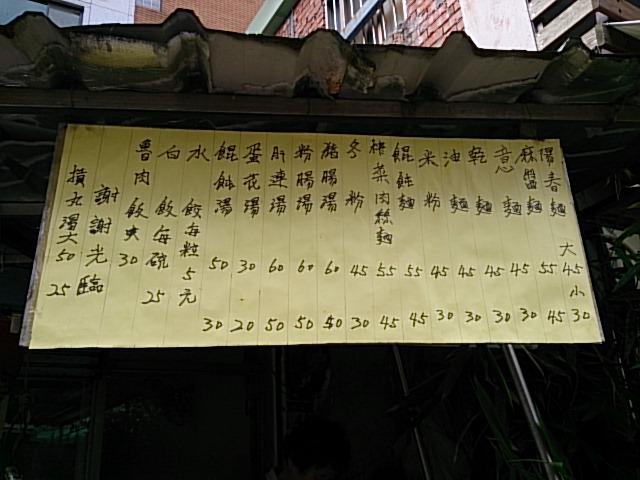 陽春麵 大45 小30
麻醬麵 55 45
意麵 45 30
乾麵 45 30
油麵 45 30
米粉 45 30
餛飩麵 55 45
榨菜肉絲麵 55 45
冬粉 45 30
豬腸湯 60 50
粉腸湯 60 50
肝連湯 60 50
蛋花湯 30 20
餛飩湯 50 30
水餃每粒5元
白飯每碗25
魯肉飯大30
謝謝光臨
摃丸湯大50 25